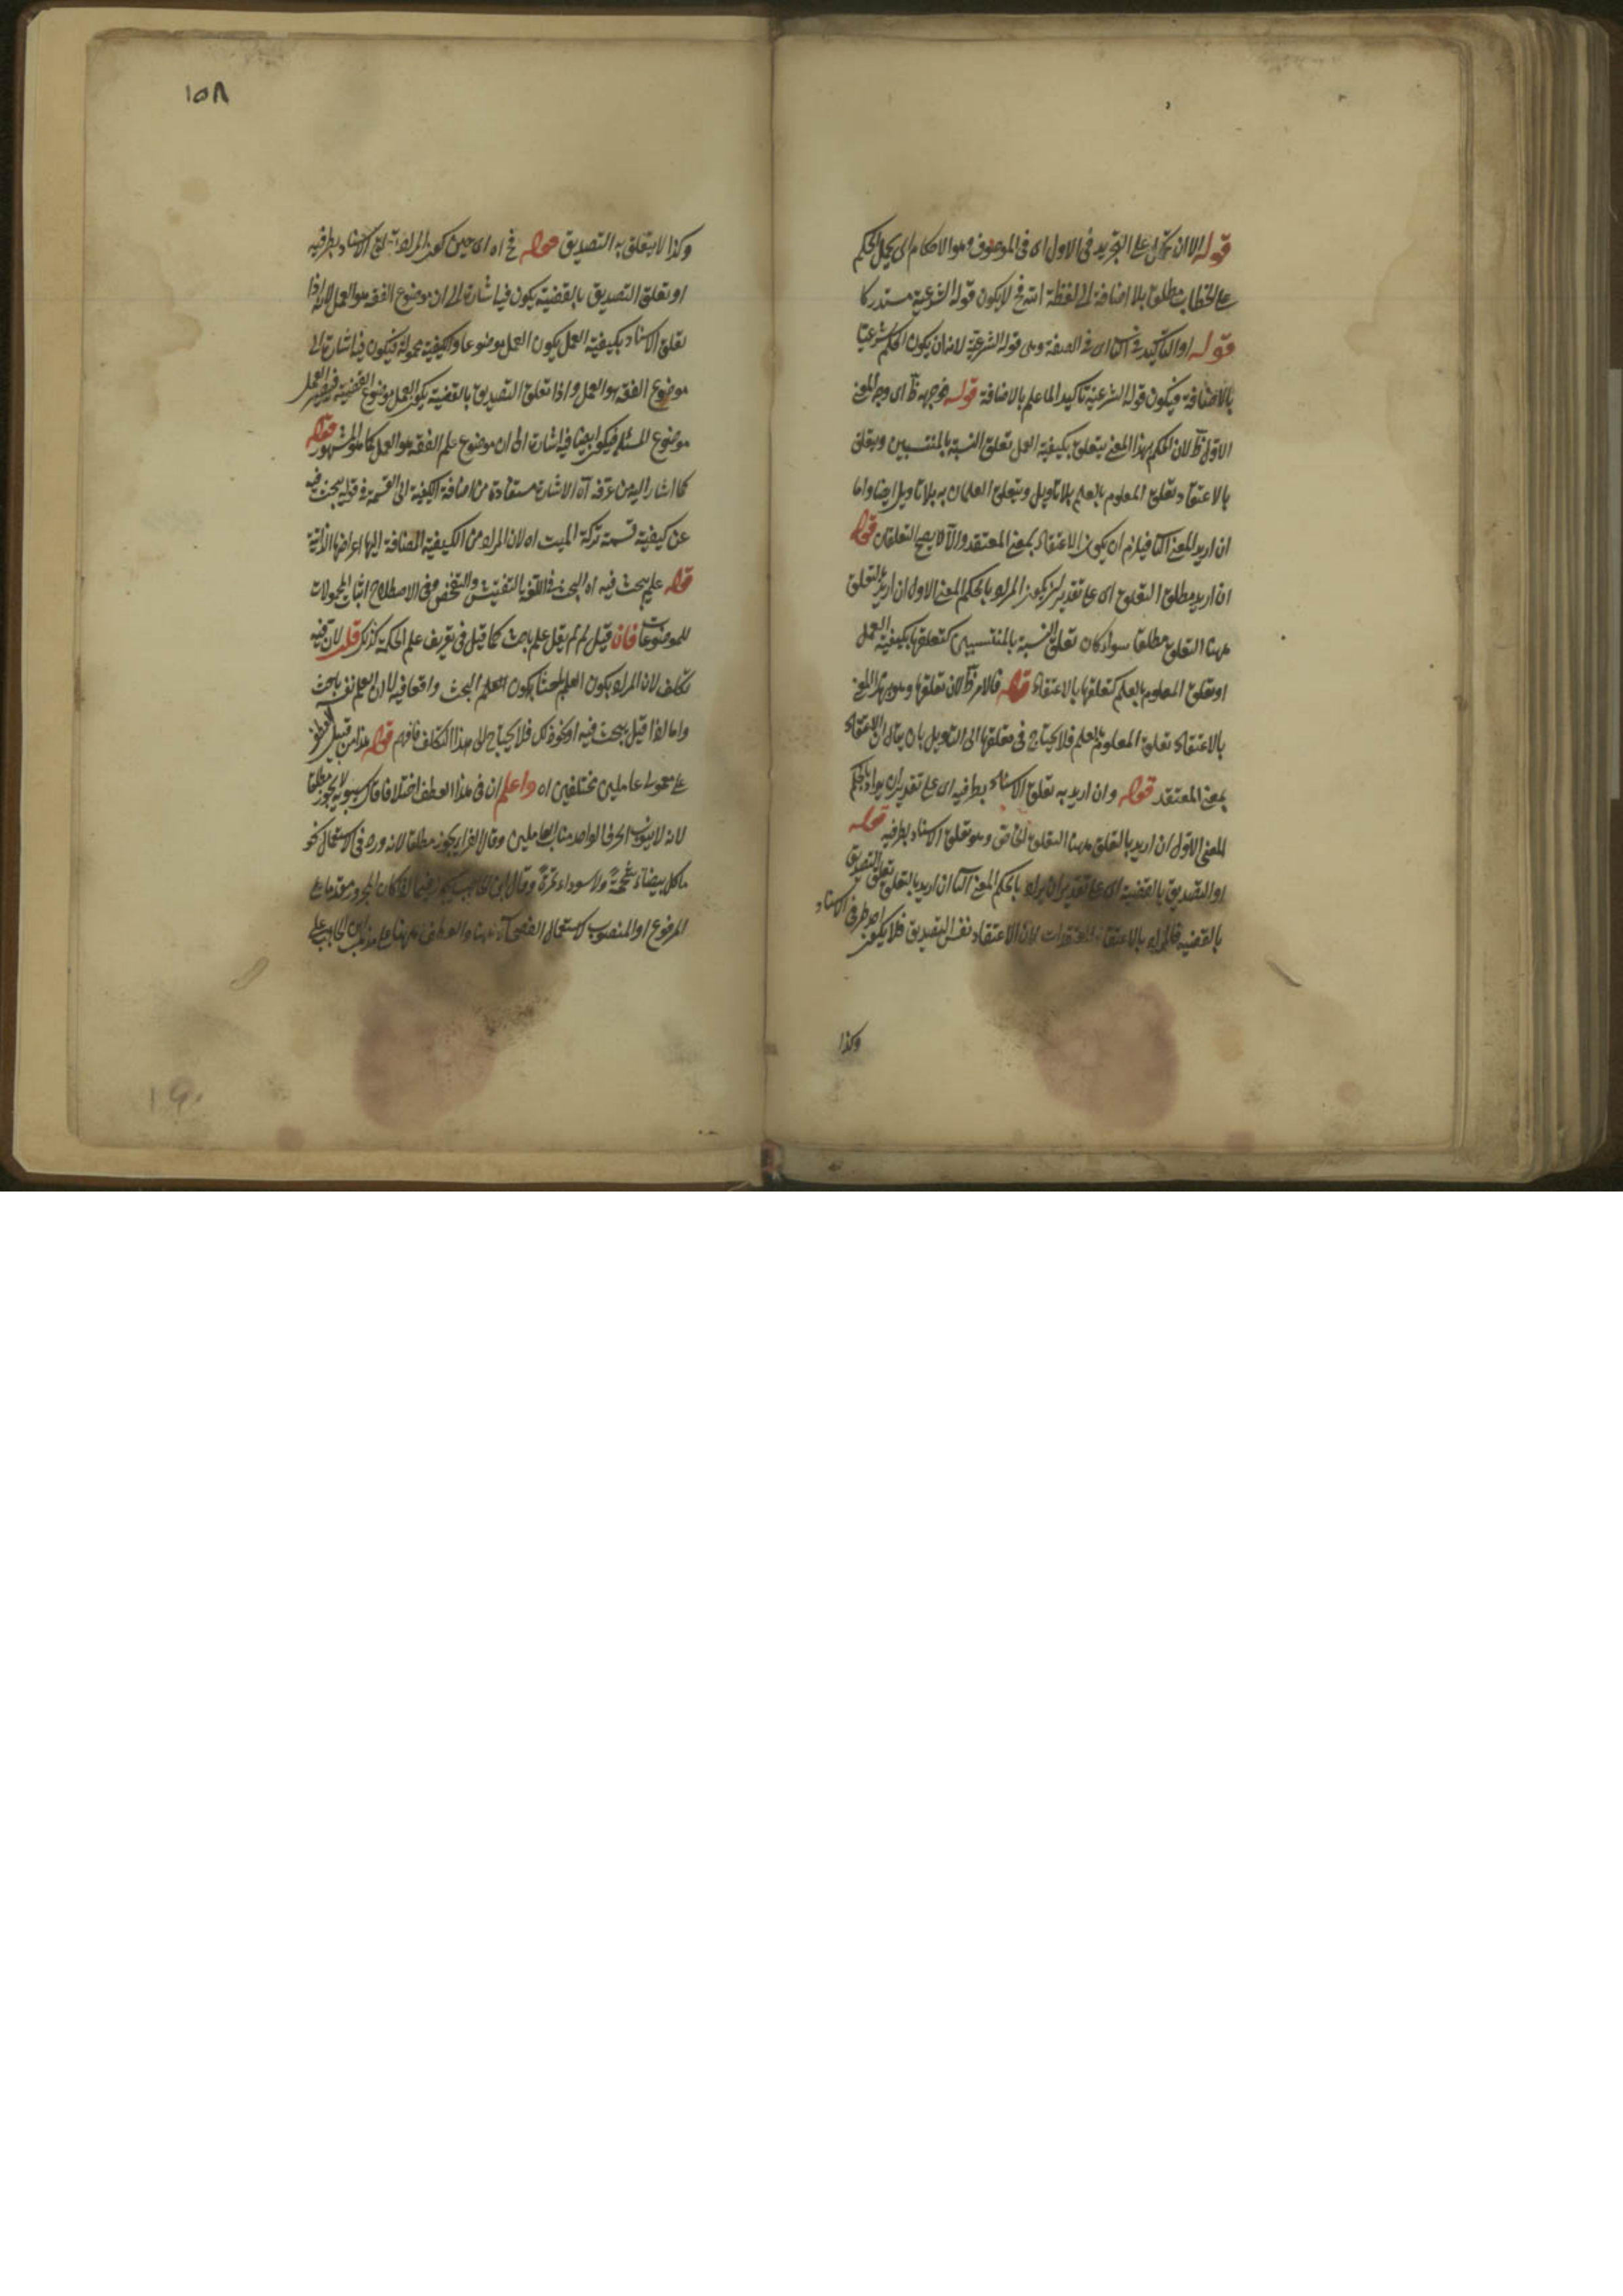 قوله الا ان يحمل على التجريد في الاول اى في الموصوف وهو الاحكام اى يحمل الحكم
على الخطاب مطلقا بلا اضافة الى لفظة الله فح لا يكون قوله الشرعية مستدركا
قوله او التأكيد في الثاني اى في الصفة وهى قوله الشرعية لانه ان يكون الحكم شرعيا
بالاضافة فيكون قوله الشرعية تاكيدا لما علم بالاضافة قوله فوجهه ظ اى وجه المعنى
الاول ظ لان الحكم بهذا المعنى يتعلق بكيفية العمل تعلق النسبة بالمنتسبين ويتعلق
بالاعتقاد تعلق المعلوم بالعلم بلا تأويل ويتعلق العلمان به بلا تاويل ايضا واما
ان اريد المعنى الثاني فيلزم ان يكون الاعتقاد بمعنى المعتقد والا لا يصح التعلقان قوله
ان اريد مطلق التعلق اى على تقدير ان يكون المراد بالحكم المعنى الاول ان اريد بالتعلق
ههنا التعلق مطلقا سواء كان تعلق النسبة بالمنتسبين كتعلقها بكيفية العمل
او تعلق المعلوم بالعلم كتعلقها بالاعتقاد قوله فالامر ظ لان تعلقها وهو بهذا المعنى
بالاعتقاد تعلق المعلوم بالعلم فلا يحتاج في تعلقها الى التاويل بان يقال ان الاعتقاد
بمعنى المعتقد قوله وان اريد به تعلق الاسناد بطرفيه اى على تقدير ان يراد بالحكم
المعنى الاول ان اريد بالتعلق ههنا التعلق الخاص وهو تعلق الاسناد بطرفيه قوله
او التصديق بالقضية اى على تقدير ان يراد بالحكم المعنى الثاني ان اريد بالتعلق تعلق التصديق
بالقضية فالمراد بالاعتقاد المعتقدات لان الاعتقاد نفس التصديق فلا يكون احد طرفي الاسناد
وكذا
١٥٨
وكذا لا يتعلق به التصديق قوله فح اه اى حين كون المراد تعلق الاسناد بطرفيه
او تعلق التصديق بالقضية يكون فيه اشارة الى ان موضوع الفقه هو العمل لانه اذا
تعلق الاسناد بكيفية العمل يكون العمل موضوعا والكيفية محمولة فيكون فيه اشارة الى
موضوع الفقه هو العمل واذا تعلق التصديق بالقضية يكون العمل موضوع القضية فيصير العمل
موضوع المسئلة فيكون ايضا فيه اشارة الى ان موضوع علم الفقه هو العمل كما هو المشهور قوله
كما اشار اليه من عرفه اه الاشارة مستفادة من اضافة الكيفية الى القسمة في قوله يبحث فيه
عن كيفية قسمة تركة الميت اه لان المراد من الكيفية المضافة اليها اعراضها الذاتية
قوله علم يبحث فيه اه البحث في اللغة التفتيش والتفحص وفي الاصطلاح اثبات المحمولات
للموضوعات فان قيل لم لم يقل علم باحث كما قيل في تعريف علم الحكمة كذلك قلت لان فيه
تكلف لان المراد بكون العلم باحثا يكون العلم البحث واقعا فيه لا لان العلم نفسه باحث
واما اذا قيل يبحث فيه او نحو ذلك فلا يحتاج الى هذا التكلف فافهم قوله هذا من قبيل العطف
على معمولى عاملين مختلفين اه واعلم ان في هذا العطف اختلافا قال سيبويه لا يجوز مطلقا
لانه لا ينوب الحرف الواحد مناب العاملين وقال الفراء يجوز مطلقا لانه ورد في الاستعمال نحو
ما كل بيضاء شحمة ولا سوداء تمرة وقال ابن الحاجب يجوز فيما اذا كان المجرور مقدما على
المرفوع او المنصوب لاستعمال الفصحاء ههنا والعطف ههنا على مذهب ابن الحاجب على
١٩٠